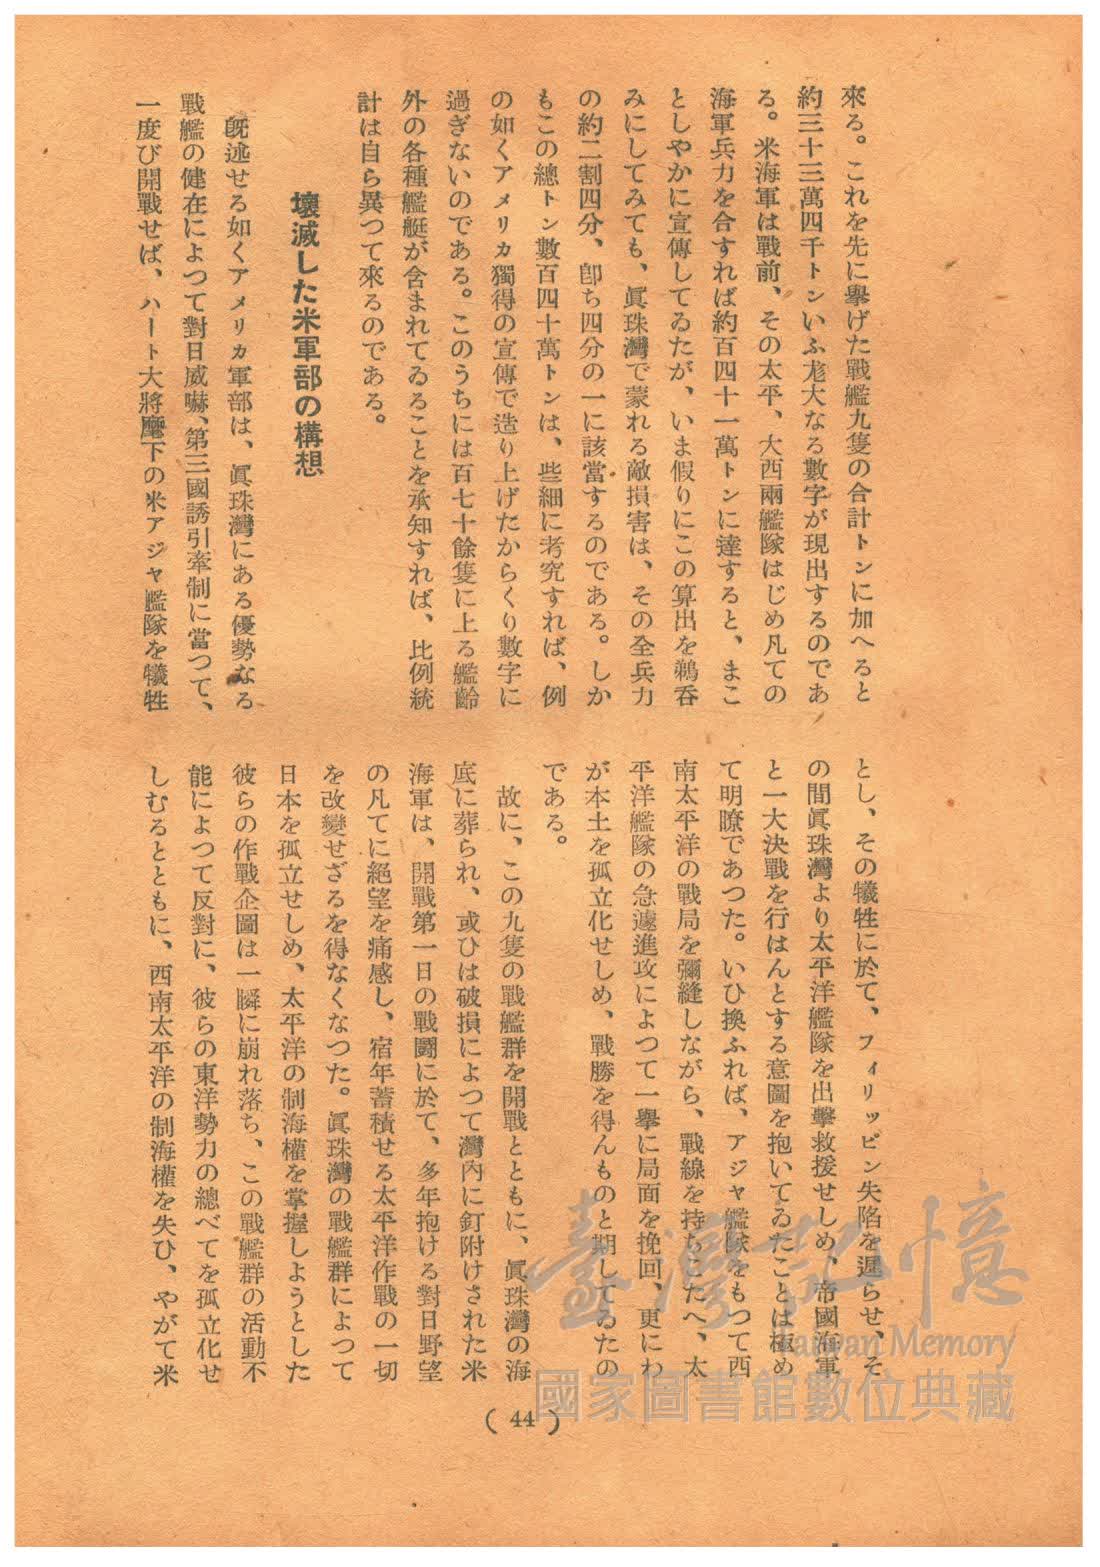 來る。これを先に擧げた戰艦九隻の合計トンに加へると
約三十三萬四千トンいふ尨大なる數字が現出するのであ
る。米海軍は戰前、その太平、大西兩艦隊はじめ凡ての
海軍兵力を合すれば約百四十一萬トンに達すると、まこ
としやかに宣傳してゐたが、いま假りにこの算出を鵜呑
みにしてみても、眞珠灣で蒙れる敵損害は、その全兵力
の約二割四分、卽ち四分の一に該當するのである。しか
もこの總トン數百四十萬トンは、些細に考究すれば、例
の如くアメリカ獨得の宣傳で造り上げたからくり數字に
過ぎないのである。このうちには百七十餘隻に上る艦齡
外の各種艦艇が含まれてゐることを承知すれば、比例統
計は自ら異つて來るのである。
壞滅した米軍部の構想
旣述せる如くアメリカ軍部は、眞珠灣にある優勢なる
戰艦の健在によつて對日威嚇、第三國誘引牽制に當つて、
一度び開戰せば、ハート大將麾下の米アジヤ艦隊を犧牲
とし、その犧牲に於て、フィリッピン失陷を遲らせ、そ
の間眞珠灣より太平洋艦隊を出擊救援せしめ、帝國海軍
と一大決戰を行はんとする意圖を抱いてゐたことは極め
て明瞭であつた。いひ換ふれば、アジヤ艦隊をもつて西
南太平洋の戰局を彌縫しながら、戰線を持ちこたへ、太
平洋艦隊の急遽進攻によつて一擧に局面を挽回、更にわ
が本土を孤立化せしめ、戰勝を得んものと期してゐたの
である。
故に、この九隻の戰艦群を開戰とともに、眞珠灣の海
底に葬られ、或ひは破損によつて灣內に釘附けされた米
海軍は、開戰第一日の戰鬪に於て、多年抱ける對日野望
の凡てに絕望を痛感し、宿年蓄積せる太平洋作戰の一切
を改變せざるを得なくなつた。眞珠灣の戰艦群によつて
日本を孤立せしめ、太平洋の制海權を掌握しようとした
彼らの作戰企圖は一瞬に崩れ落ち、この戰艦群の活動不
能によつて反對に、彼らの東洋勢力の總べてを孤立化せ
しむるとともに、西南太平洋の制海權を失ひ、やがて米
( 44 )
臺灣記憶
Taiwan Memory
國家圖書館數位典藏